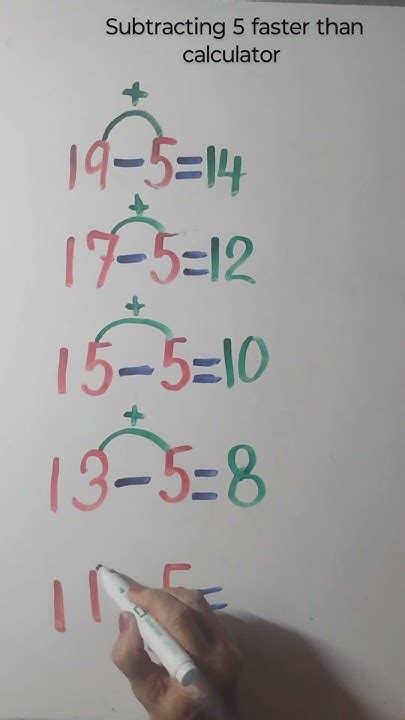 Subtracting 5 faster than
calculator
+
19-5=14
+
17-5=12
+
15-5=10
+
13-5=8
11 5=